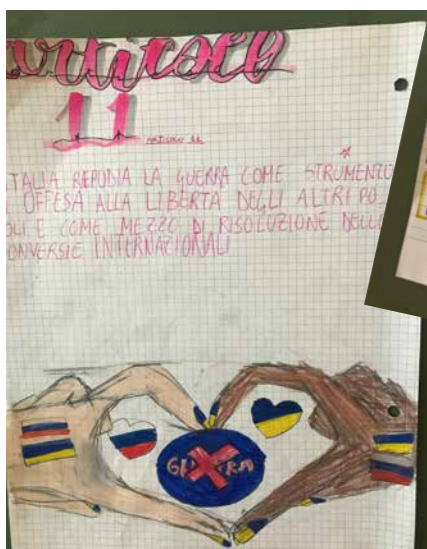 articolo
11
articolo 11
ITALIA RIPUDIA LA GUERRA COME STRUMENTO
OFFESA ALLA LIBERTÀ DEGLI ALTRI PO
OLI E COME MEZZO DI RISOLUZIONE DELLE
ONVERSIE INTERNAZIONALI
GU RA